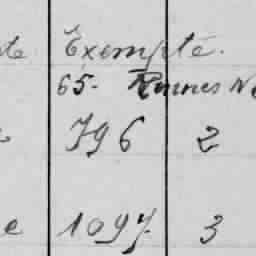 te Exempté.
65. Rennes N
796 2
e 1097. 3